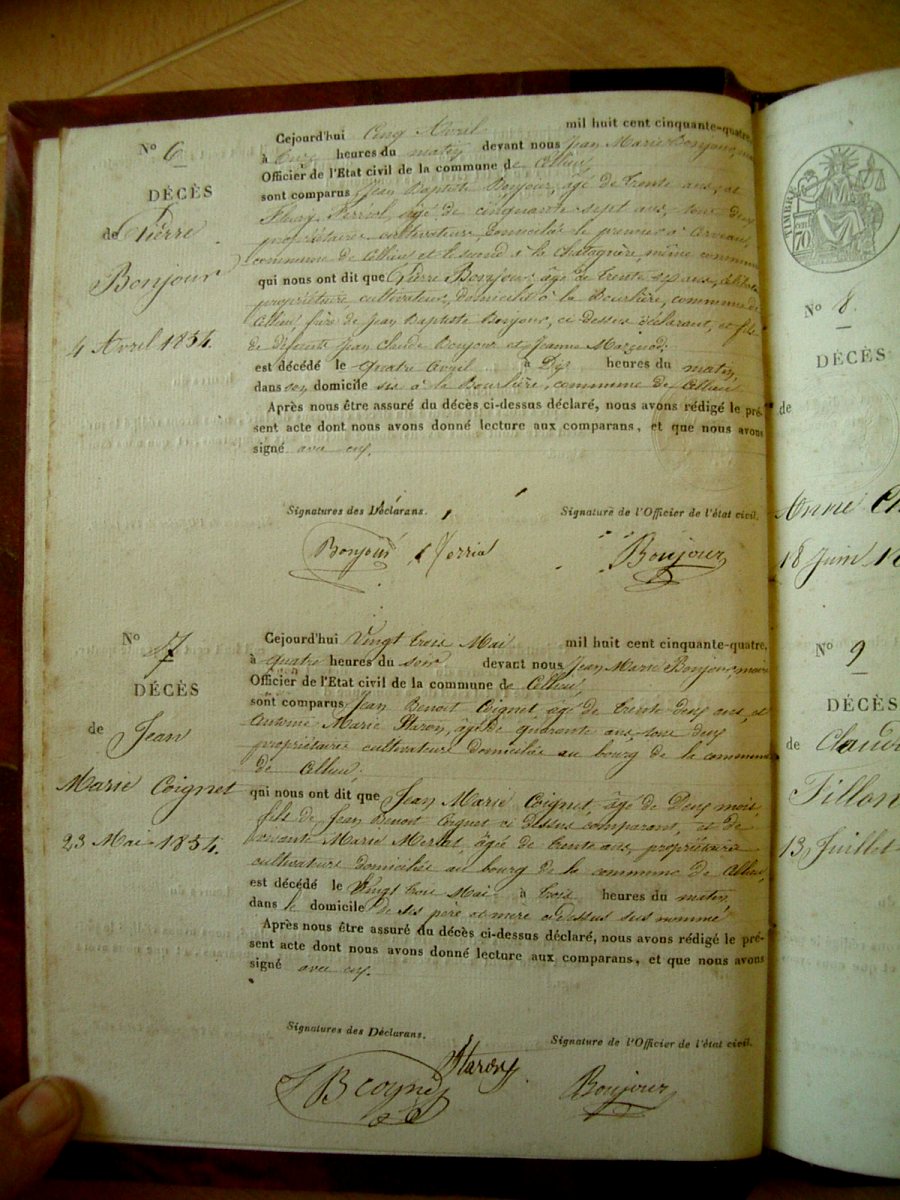 No 6
DÉCÈS
de Pierre
Bonjour
4 Avril 1854.
Cejourd'hui Cinq Avril mil huit cent cinquante-quatre,
à Onze heures du matin devant nous Jean Marie Bonjour, maire
Officier de l'Etat civil de la commune de Cilleu,
sont comparus Jean Baptiste Bonjour, âgé de trente ans, et
Verrial, âgé de cinquante sept ans, tous deux
propriétaires cultivateurs, domiciliés le premier à
commune de Cilleu et le second à la Chatagnère, même commune
qui nous ont dit que Pierre Bonjour, âgé de trente ans, célibataire
propriétaire cultivateur, domicilié à la Bourlière, commune de
Cilleu frère de Jean Baptiste Bonjour, ci dessus déclarant, et fils
de défunts Jean Claude Bonjour et Jeanne
est décédé le quatre Avril à Dix heures du matin,
dans son domicile sis à la Bourlière, commune de Cilleu.
Après nous être assuré du décès ci-dessus déclaré, nous avons rédigé le pré-
sent acte dont nous avons donné lecture aux comparans, et que nous avons
signé avec eux.
Signatures des Déclarans. Signature de l'Officier de l'état civil.
Bonjour Verrial Bonjour
No 7
DÉCÈS
de Jean
Marie Coignet
23 Mai 1854.
Cejourd'hui Vingt trois Mai mil huit cent cinquante-quatre,
à quatre heures du soir devant nous Jean Marie Bonjour, maire
Officier de l'Etat civil de la commune de Cilleu,
sont comparus Jean Benoit Coignet, âgé de trente deux ans, et
Antoine Marie Staron, âgé de quarante ans, tous deux
propriétaires cultivateurs domiciliés au bourg de la commune
de Cilleu.
qui nous ont dit que Jean Marie Coignet, âgé de Deux mois,
fils de Jean Benoit Coignet ci dessus comparant, et de
vivante Marie Merlat, âgée de trente ans, propriétaires
cultivateurs domiciliés au bourg de la commune de Cilleu,
est décédé le Vingt trois Mai à trois heures du matin,
dans le domicile de ses père et mère ci dessus nommé
Après nous être assuré du décès ci-dessus déclaré, nous avons rédigé le pré-
sent acte dont nous avons donné lecture aux comparans, et que nous avons
signé avec eux.
Signatures des Déclarans. Signature de l'Officier de l'état civil.
Staron Bonjour
TIMBRE
70
No 8.
DÉCÈS
de
Anne
18 Juin
No 9
DÉCÈS
de
Fillon
13 Juillet